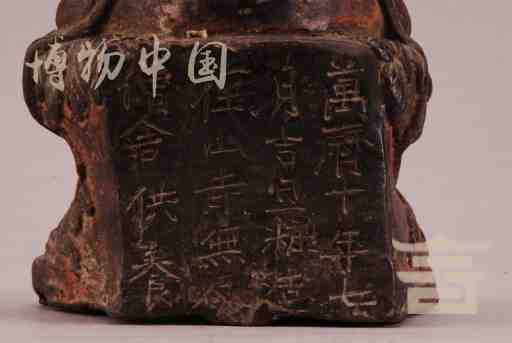 博物中国
萬曆十年七
月吉旦粧造
山寺無
舍供养